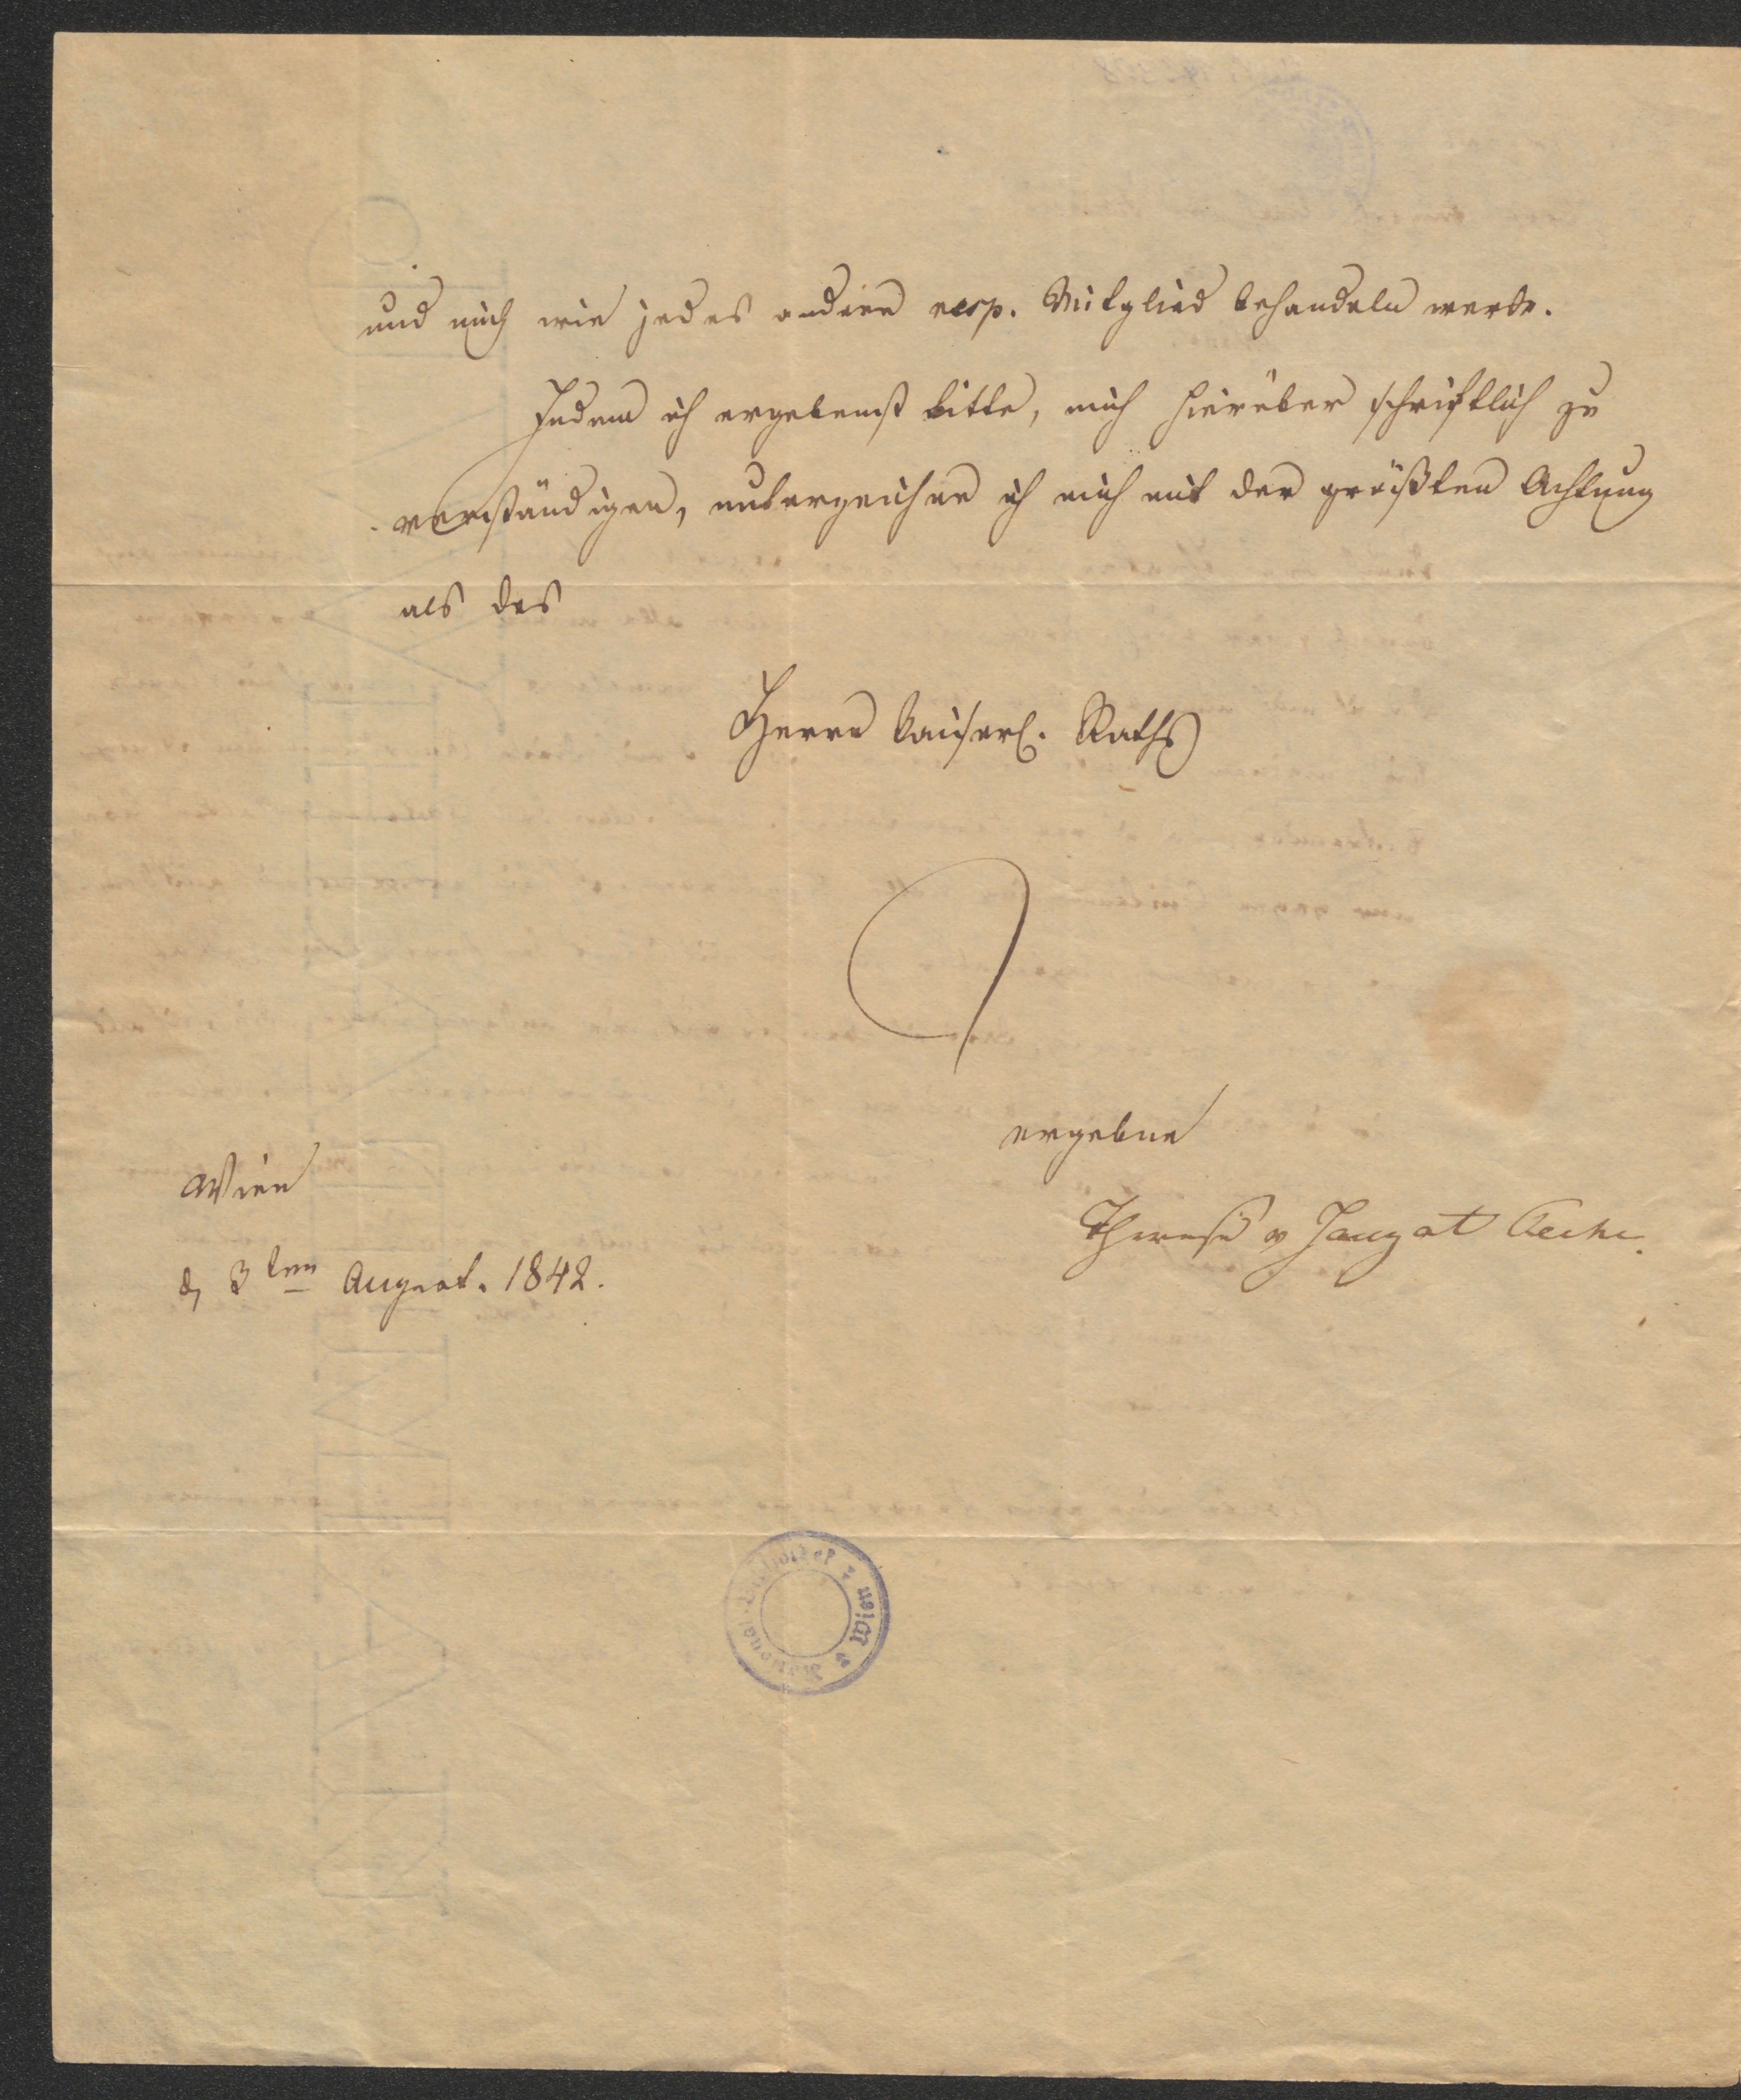 und mich wie jedes andere resp. Mitglied behandeln werde.
Indem ich ergebenst bitte, mich hierüber schriftlich zu
verständigen, unterzeichne ich mich mit der größten Achtung
als des
Herrn kaiserl. Raths
ergebene
Wien
Therese v
d 3ten August. 1842.
National-Bibliothek Wien